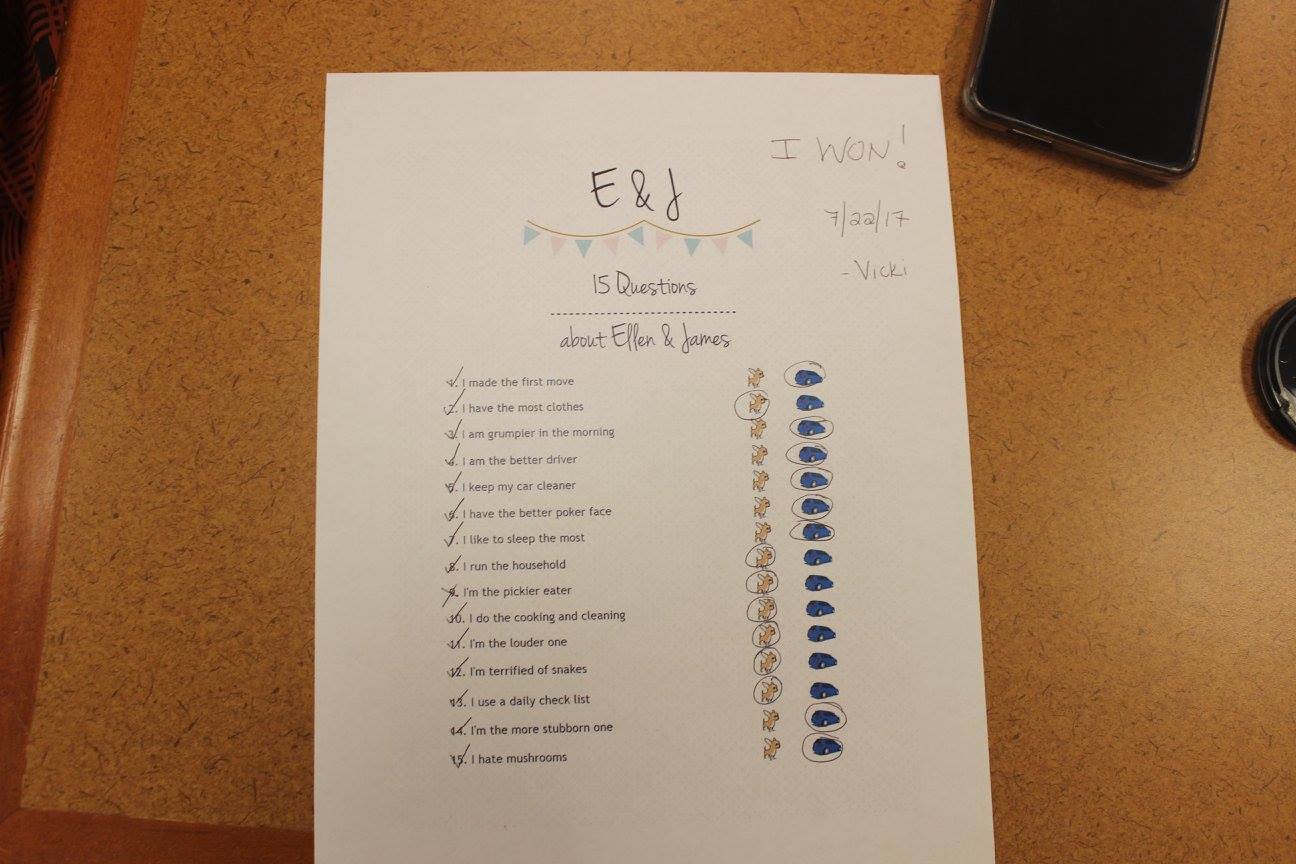 I WON!
E & J
7/22/17
-Vicki
15 Questions
about Ellen & James
1. I made the first move
2. I have the most clothes
3. I am grumpier in the morning
4. I am the better driver
5. I keep my car cleaner
6. I have the better poker face
7. I like to sleep the most
8. I run the household
9. I'm the pickier eater
10. I do the cooking and cleaning
11. I'm the louder one
12. I'm terrified of snakes
13. I use a daily check list
14. I'm the more stubborn one
15. I hate mushrooms